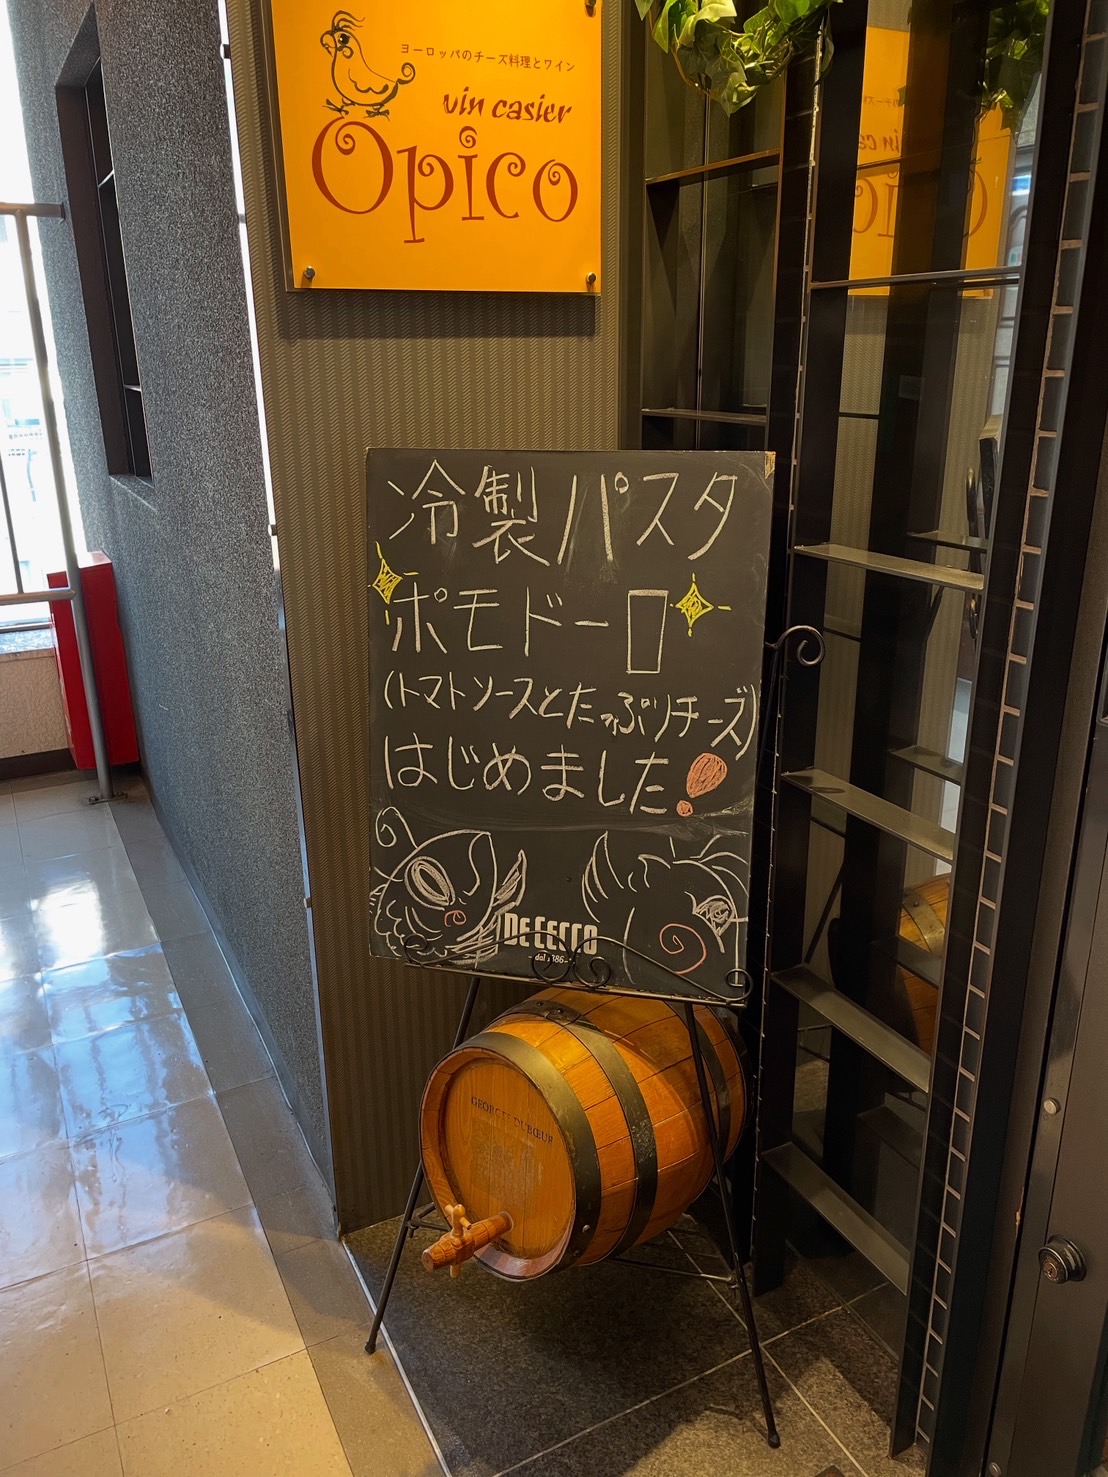 ヨーロッパのチーズ料理とワイン
vin casier
Opico
冷製パスタ
ポモドーロ
(トマトソースとたっぷりチーズ)
はじめました!
DE CECCO
- dal 1886 -
GEORGES DUBŒUF